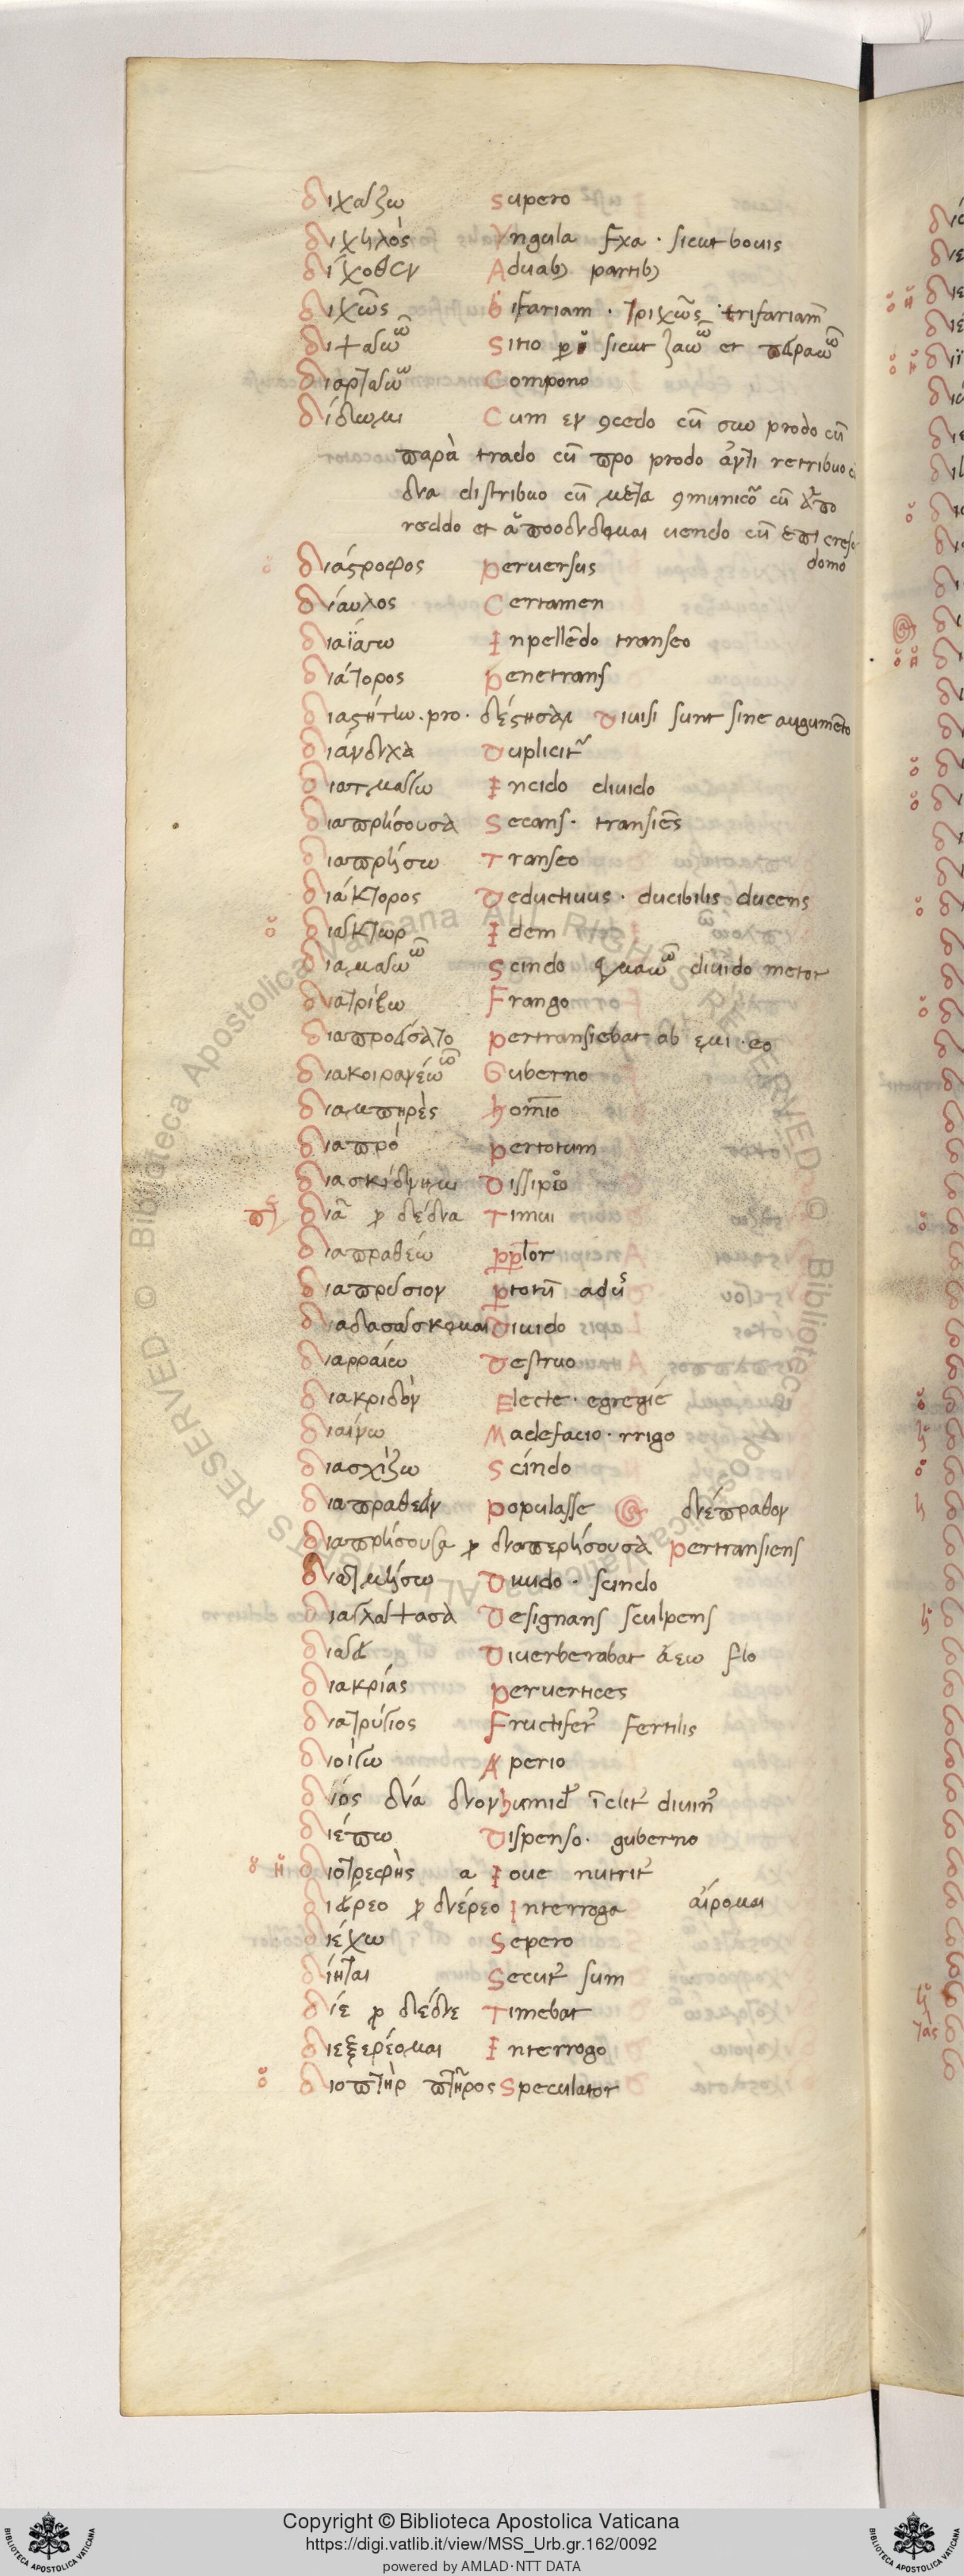 διχάζω supero
διχηλός Ungula fxa · sicut bouis
δίχοθεν Aduabꝫ partibꝫ
διχῶς bifariam · τριχῶς trifariam̄
διψάω Sitio sicut ζάω et περάω
διαρτάω Compono
δίδωμι Cum εν ꝯcedo cū συν prodo cū
παρὰ trado cū προ prodo ἀντὶ retribuo
δια distribuo cū μετα ꝯmunico cū ἀπο
reddo et ἀποδίδομαι uendo cū ἐπι
domo
διάστροφος peruersus
δίαυλος Certamen
διαΐσσω Inpellēdo transeo
διάτορος penetrans
διαστήτω · pro · διέστησαν Diuisi sunt sine augumēto
διάνδιχα Duplicit
διατμάσσω Incido diuido
διαπρήσουσα Secans · transiēs
διαπρήσω Transeo
διάκτορος Deductiuus · ducibilis ducens
διάκτωρ Idem
διαμάω Scindo diuido metor
διατρίβω Frango
pertransiebat ab eo
διακοιρανέω Guberno
διαμπερὲς
διαπρό pertotum
διασκίδνημι Dissipo
δια ꝓ δέδια Timui
διαπραθέω
διαπρύσιον
διαδάσκομαι Diuido
διαρραίω Destruo
διακριδὸν Electe · egregié
διαίνω Madefacio · rrigo
διασχίζω Scindo
διαπραθεῖν populasse διέπραθον
διαπρήσουσα ꝓ διαπερήσουσα pertransiens
διατμήσω Diuido · scindo
Designans sculpens
Diuerberabat ἄεω flo
διακρίας peruertices
διατρύγιος Fructifer fertilis
διοίγω Aperio
δῖος δῖα δῖον humid diuin
διέπω Dispenso · guberno
διοτρεφὴς a Ioue nutrit
διείρεο ꝓ διέρεο Interroga αἴρομαι
διέχω Sepero
δίηται Secut sum
δίε ꝓ δέδιε Timebat
διεξερέομαι Interrogo
διοπτὴρ πτῆρος Speculator
Copyright © Biblioteca Apostolica Vaticana
https://digi.vatlib.it/view/MSS_Urb.gr.162/0092
powered by AMLAD·NTT DATA